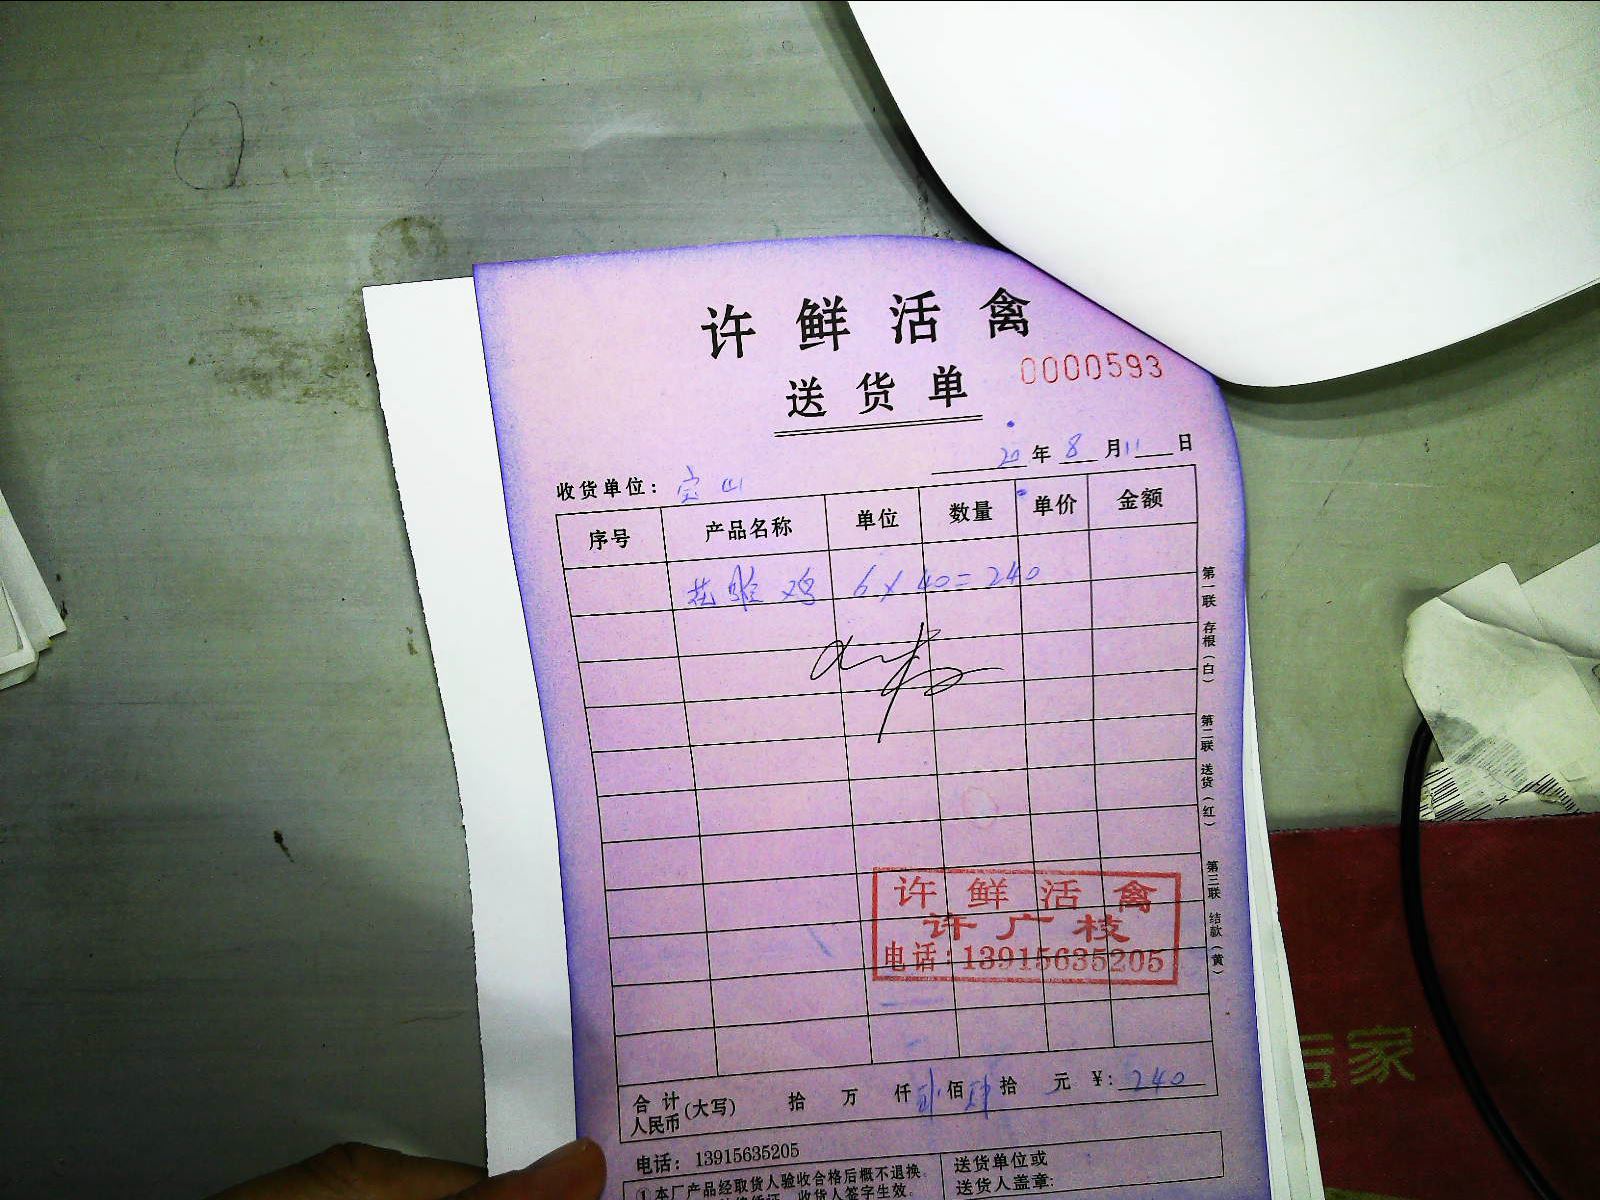 许鲜活禽
送货单
0000593
20年8月11日
收货单位：宝山
序号 产品名称 单位 数量 单价 金额
花脸鸡 6×40=240
第一联 存根（白） 第二联 送货（红） 第三联 结款（黄）
许鲜活禽
许广枝
电话：13915635205
合计人民币（大写） 拾 万 仟 贰佰 肆拾 元 ¥：240
电话：13915635205
①本厂产品经取货人验收合格后概不退换。
收货人签字生效。
送货单位或
送货人盖章：
家